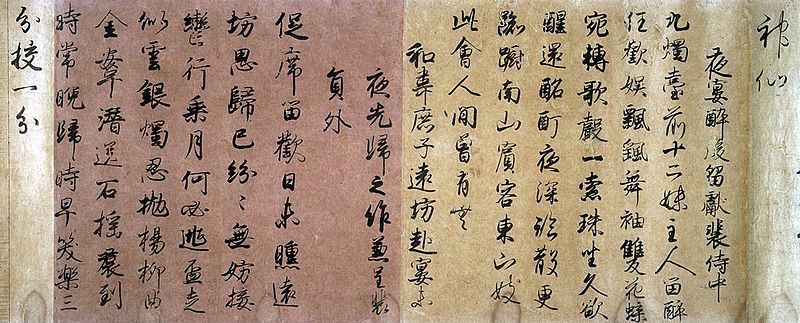 神仙
夜宴醉後留獻裴侍中
九燭臺前十二姝主人留醉
任歡娛飄颻舞袖雙飛蝶
宛轉歌聲一索珠坐久欲
醒還酩酊夜深臨散更
踟蹰南山賓客東山妓
此會人間曾有無
和韋庶子遠坊赴宴未
夜先歸之作兼呈裴
員外
促席留歡日未曛遠
坊思歸已紛々無妨按
轡行乘月何必逃盃走
似雲銀燭忍拋楊柳曲
金鞍潛送石榴裙到
時常晚歸時早笑樂三
分校一分